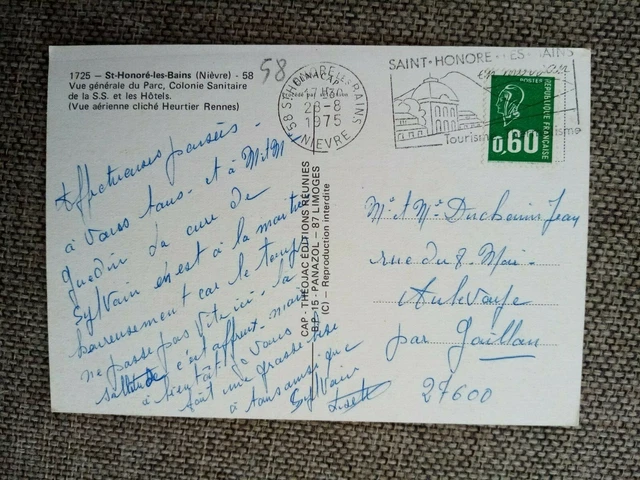 1725 — St-Honoré-les-Bains (Nièvre) - 58
Vue générale du Parc, Colonie Sanitaire
de la S.S. et les Hôtels.
(Vue aérienne cliché Heurtier Rennes)
58
58 ST-HONORE LES BAINS
28-8
1975
NIEVRE
SAINT-HONORE-LES-BAINS
Tourisme
POSTES
REPUBLIQUE FRANÇAISE
0,60
Affectueuses pensées -
à vous tous - et à M et Mme
Guedin La cure de
Sylvain en est à la moitié
heureusement car le temps
ne passe pas vite ici - la
solitude c'est affreux - mais
à bientôt à vous
tous une grosse bise
à tous ainsi que
Sylvain
CAP - THEOJAC ÉDITIONS RÉUNIES
B.P. 15 - PANAZOL - 87 LIMOGES
(C) - Reproduction interdite
Mr et Me Duchemin Jean
rue du 8 Mai -
Aubevoye
par Gaillon
27600